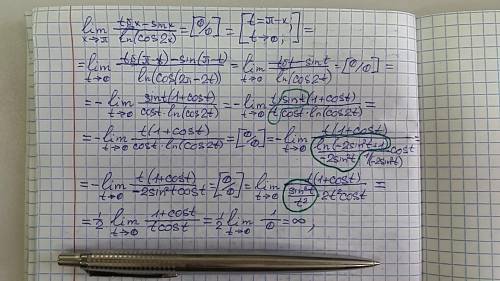 lim x→π (tg x − sin x)/ln(cos2x) = [0/0] = [t = π−x, t→0;] =
= lim t→0 (tg(π−t) − sin(π−t))/ln(cos(2π−2t)) = lim t→0 (−tg t − sin t)/ln(cos2t) = [0/0] =
= − lim t→0 sin t(1+cos t)/(cos t · ln(cos2t)) = − lim t→0 t sin t(1+cos t)/(t cos t · ln(cos2t)) =
= − lim t→0 t(1+cos t)/(cos t · ln(cos2t)) = [0/0] = − lim t→0 t(1+cos t)/(ln(−2sin²t+1)/(−2sin²t) · (−2sin²t) cos t) =
= − lim t→0 t(1+cos t)/(−2sin²t cos t) = [0/0] = lim t→0 t(1+cos t)/(sin²t/t² · 2t² cos t) =
= 1/2 lim t→0 (1+cos t)/(t cos t) = 1/2 lim t→0 1/0 = ∞,